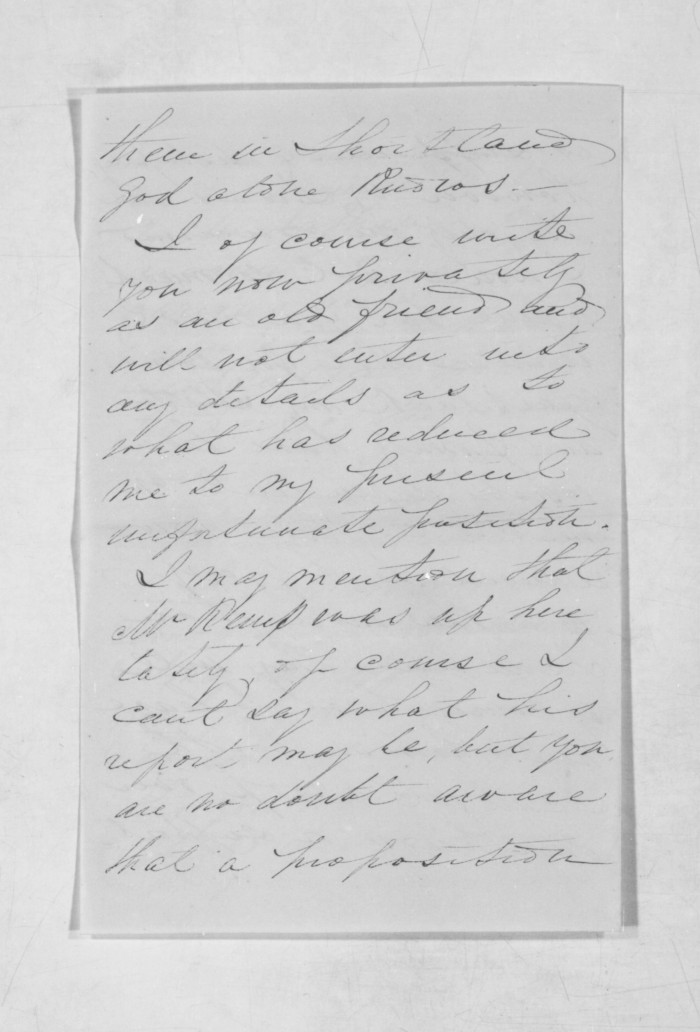 them in Shortland
God alone Knows. —
I of course write
you now privately
as an old friend and
will not enter into
any details as to
what has reduced
me to my present
unfortunate position.
I may mention that
Mr Kemp was up here
lately, of course I
cant say what his
report may be, but you
are no doubt aware
that a proposition